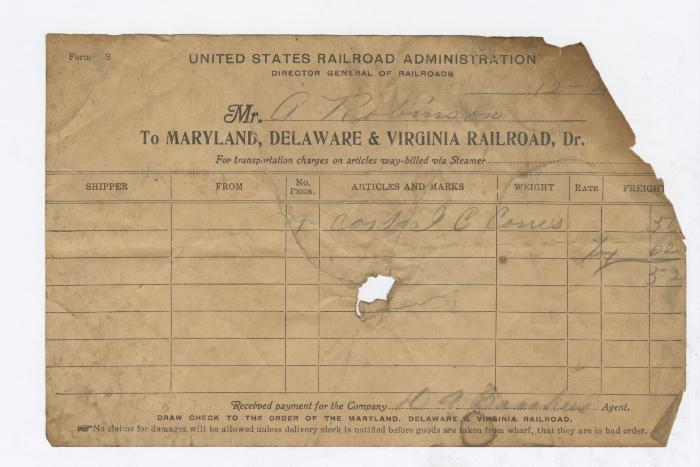 Form S
UNITED STATES RAILROAD ADMINISTRATION
DIRECTOR GENERAL OF RAILROADS
12-
Mr. A Robinson
To MARYLAND, DELAWARE & VIRGINIA RAILROAD, Dr.
For transportation charges on articles way-billed via Steamer
SHIPPER FROM No. PKGS. ARTICLES AND MARKS WEIGHT RATE FREIGHT
I C Cones 50
02
52
Received payment for the Company Agent.
DRAW CHECK TO THE ORDER OF THE MARYLAND, DELAWARE & VIRGINIA RAILROAD.
No claims for damages will be allowed unless delivery clerk is notified before goods are taken from wharf, that they are in bad order.